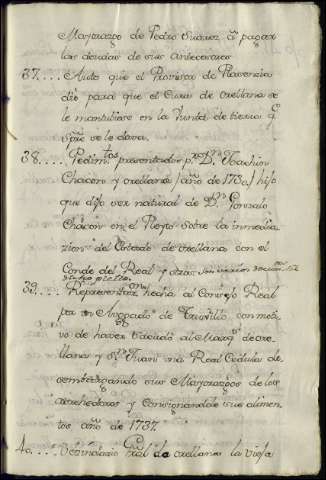 Mayorazgo de Pedro Suarez á pagar
las deudas de sus antecesores
37.... Auto que el Provisor de Plasencia
dio para que el Cura de orellana se
le mantubiese en la Junta de tierra qe
spre. se le dava.
38.... Pedimtos presentados pr. Dn. Joachin
Chacon y orellana (año de 1730) hijo
que dijo ser natural de Dn. Gonzalo
Chacon en el Pleyto sobre la inmedia
zion del Estado de orellana con el
Conde del Real y otras. Son varios
39.... Representazon. hecha al Consejo Real
por un Abogado de Truxillo con moti
vo de haver traido al Marqs. de ore
llana y Sn. Juan una Real Cedula de
sembargando sus Mayorazgos de los
acrehedores y Consignandole sus alimen
tos año de 1737.
40.... Vezindario Gral de orellana la vieja